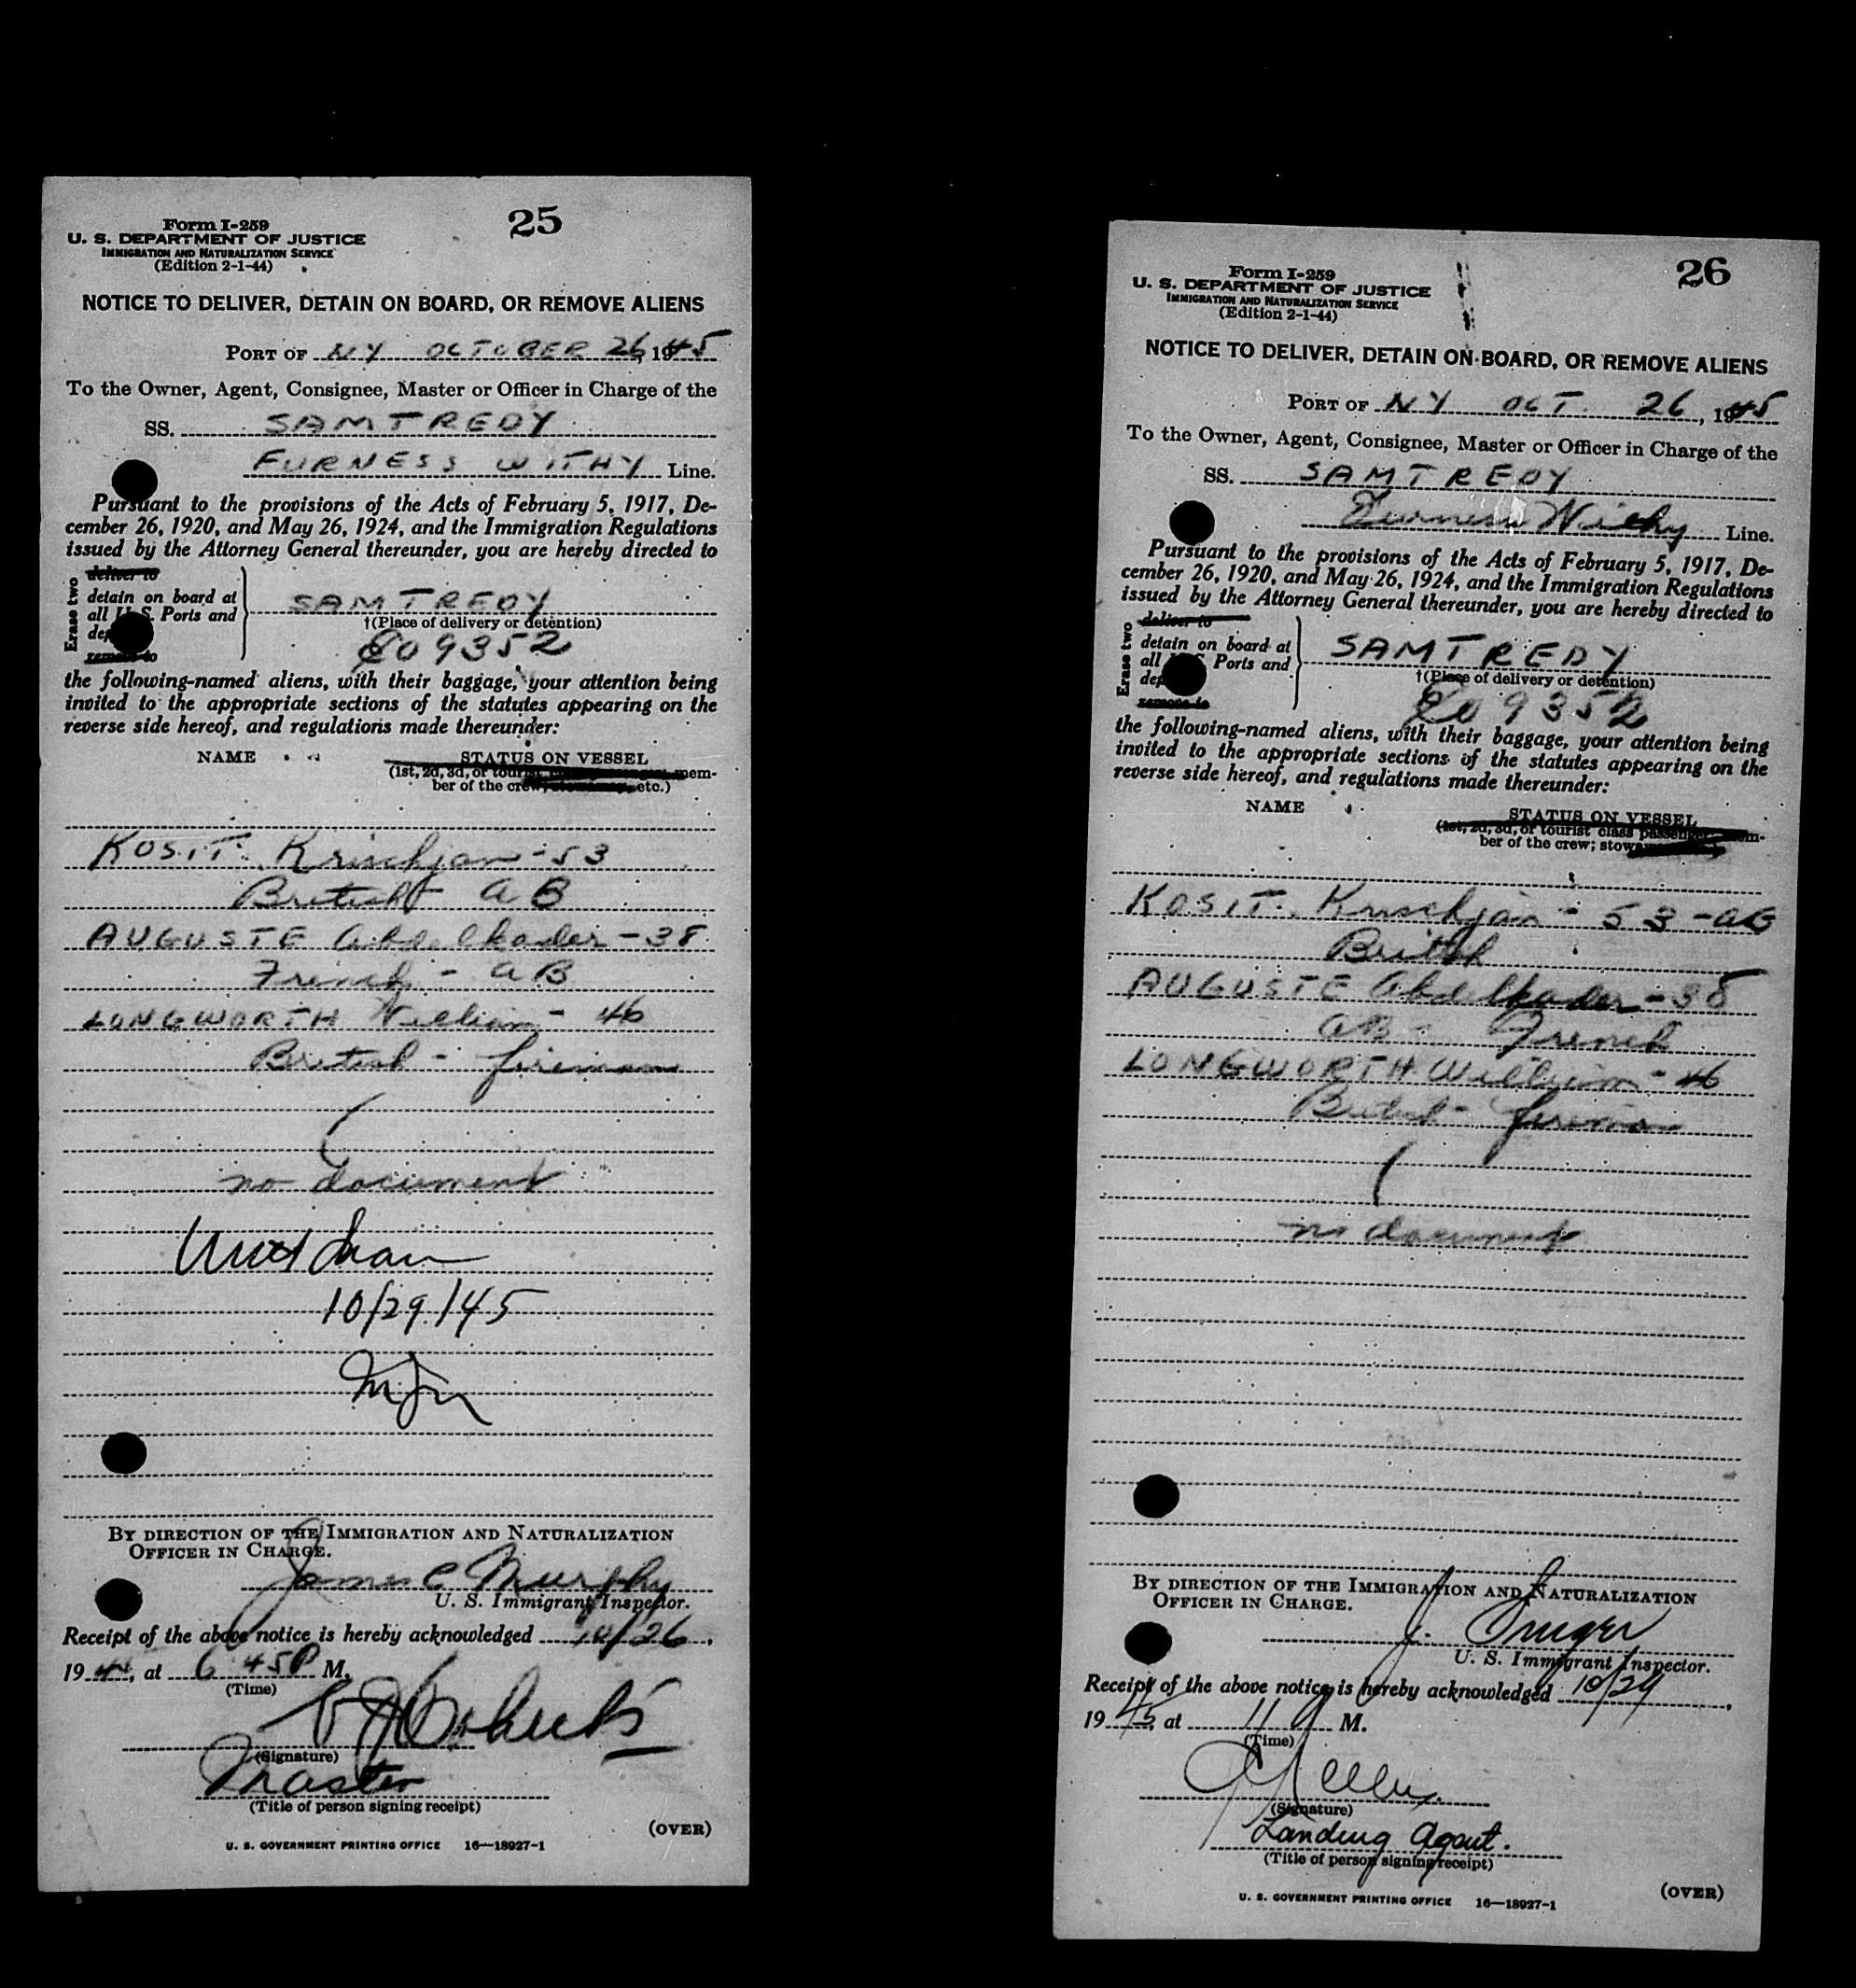 25
Form I-259
U. S. DEPARTMENT OF JUSTICE
IMMIGRATION AND NATURALIZATION SERVICE
(Edition 2-1-44)
NOTICE TO DELIVER, DETAIN ON BOARD, OR REMOVE ALIENS
PORT OF NY OCTOBER 26, 1945
To the Owner, Agent, Consignee, Master or Officer in Charge of the
SS. SAMTREDY
FURNESS WITHY Line.
Pursuant to the provisions of the Acts of February 5, 1917, De-
cember 26, 1920, and May 26, 1924, and the Immigration Regulations
issued by the Attorney General thereunder, you are hereby directed to
Erase two
deliver to
detain on board at
all U. S. Ports and
remove to
SAMTREDY
†(Place of delivery or detention)
09352
the following-named aliens, with their baggage, your attention being
invited to the appropriate sections of the statutes appearing on the
reverse side hereof, and regulations made thereunder:
NAME STATUS ON VESSEL
(1st, 2d, 3d, or tourist class passenger; mem-
ber of the crew; etc.)
KOSIT. Krischjan - 53
British AB
AUGUSTE Abdelkader - 38
French - AB
LONGWORTH William - 46
British - fireman
no document
10/29/45
BY DIRECTION OF THE IMMIGRATION AND NATURALIZATION
OFFICER IN CHARGE.
James C Murphy
U. S. Immigrant Inspector.
Receipt of the above notice is hereby acknowledged 10/26,
19 , at 6 45 P M.
(Time)
(Signature)
Master
(Title of person signing receipt)
(OVER)
U. S. GOVERNMENT PRINTING OFFICE 16—18927-1
26
Form I-259
U. S. DEPARTMENT OF JUSTICE
IMMIGRATION AND NATURALIZATION SERVICE
(Edition 2-1-44)
NOTICE TO DELIVER, DETAIN ON BOARD, OR REMOVE ALIENS
PORT OF NY OCT. 26, 1945
To the Owner, Agent, Consignee, Master or Officer in Charge of the
SS. SAMTREDY
Furness Withy Line.
Pursuant to the provisions of the Acts of February 5, 1917, De-
cember 26, 1920, and May 26, 1924, and the Immigration Regulations
issued by the Attorney General thereunder, you are hereby directed to
Erase two
deliver to
detain on board at
all Ports and
remove to
SAMTREDY
†(Place of delivery or detention)
09352
the following-named aliens, with their baggage, your attention being
invited to the appropriate sections of the statutes appearing on the
reverse side hereof, and regulations made thereunder:
NAME STATUS ON VESSEL
(1st, 2d, 3d, or tourist class passenger; mem-
ber of the crew;
KOSIT. Krischjan - 53 - AB
British
AUGUSTE Abdelkader - 38
AB - French
LONGWORTH William - 46
British - fireman
no document
BY DIRECTION OF THE IMMIGRATION AND NATURALIZATION
OFFICER IN CHARGE.
U. S. Immigrant Inspector.
Receipt of the above notice is hereby acknowledged 10/29,
1945, at 11 a M.
(Time)
(Signature)
Landing Agent.
(Title of person signing receipt)
(OVER)
U. S. GOVERNMENT PRINTING OFFICE 16—18927-1